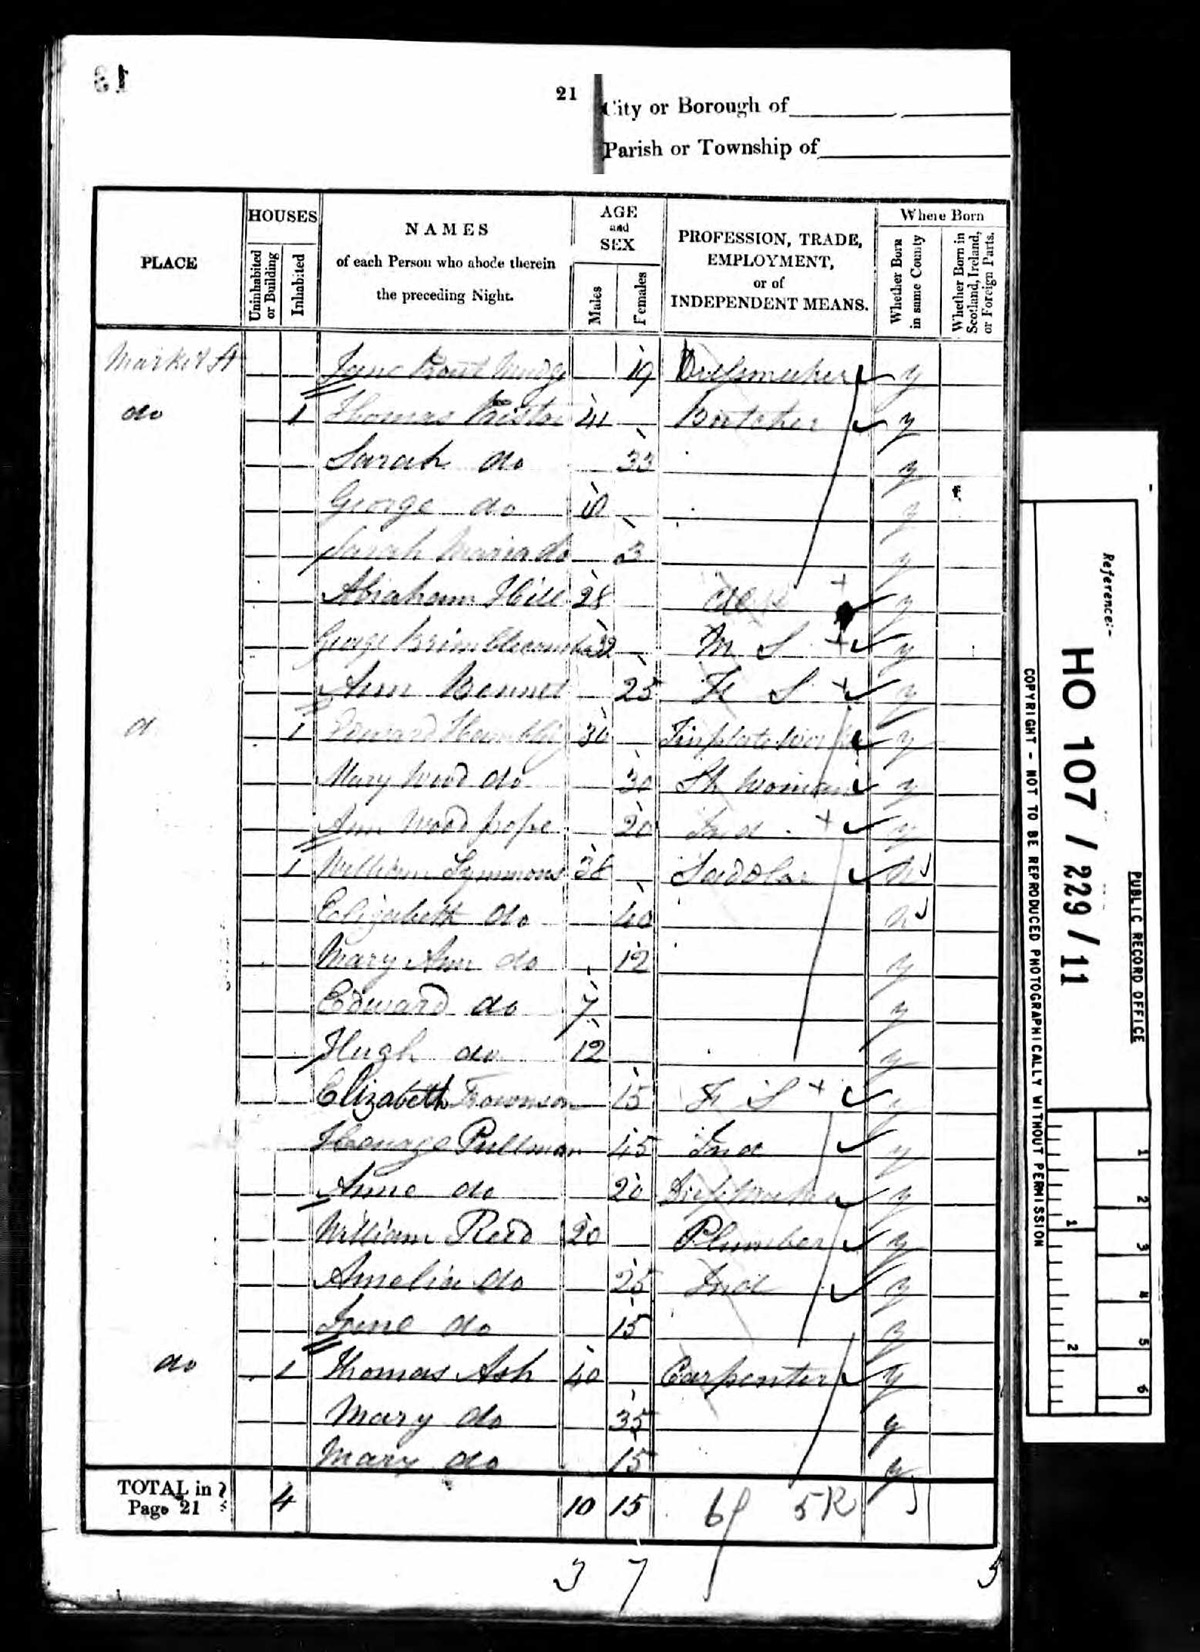 13
21
City or Borough of
Parish or Township of
PLACE
HOUSES
Uninhabited or Building
Inhabited
NAMES
of each Person who abode therein
the preceding Night.
AGE
and
SEX
Males
Females
PROFESSION, TRADE,
EMPLOYMENT,
or of
INDEPENDENT MEANS.
Where Born
Whether Born in same County
Whether Born in Scotland, Ireland, or Foreign Parts.
Market St Jane 19 Dressmaker y
do 1 Thomas 41 Butcher y
Sarah do 33 y
George do y
Sarah Maria do 3 y
Abraham Hill 28 do y
George Brimblecombe M S y
Ann Bennet 25 F S y
1 Edward 30 y
Mary Wood do 30 y
Ann Wood pope 20 Ind y
1 William Symmons 38 Saddler N
Elizabeth do 40 N
Mary Ann do 12 y
Edward do 7 y
Hugh do 12 y
Elizabeth 15 F S y
Pullman 45 Ind y
Anne do 20 y
William Reed 20 Plumber y
Amelia do 25 Ind y
Jane do 15 y
do 1 Thomas Ash 40 Carpenter y
Mary do 35 y
Mary do 15 y
TOTAL in Page 21 4 10 15 5R
3 7 5
Reference:-
HO 107 / 229 / 11
PUBLIC RECORD OFFICE
COPYRIGHT - NOT TO BE REPRODUCED PHOTOGRAPHICALLY WITHOUT PERMISSION
1 2 3 4 5 6
1 2